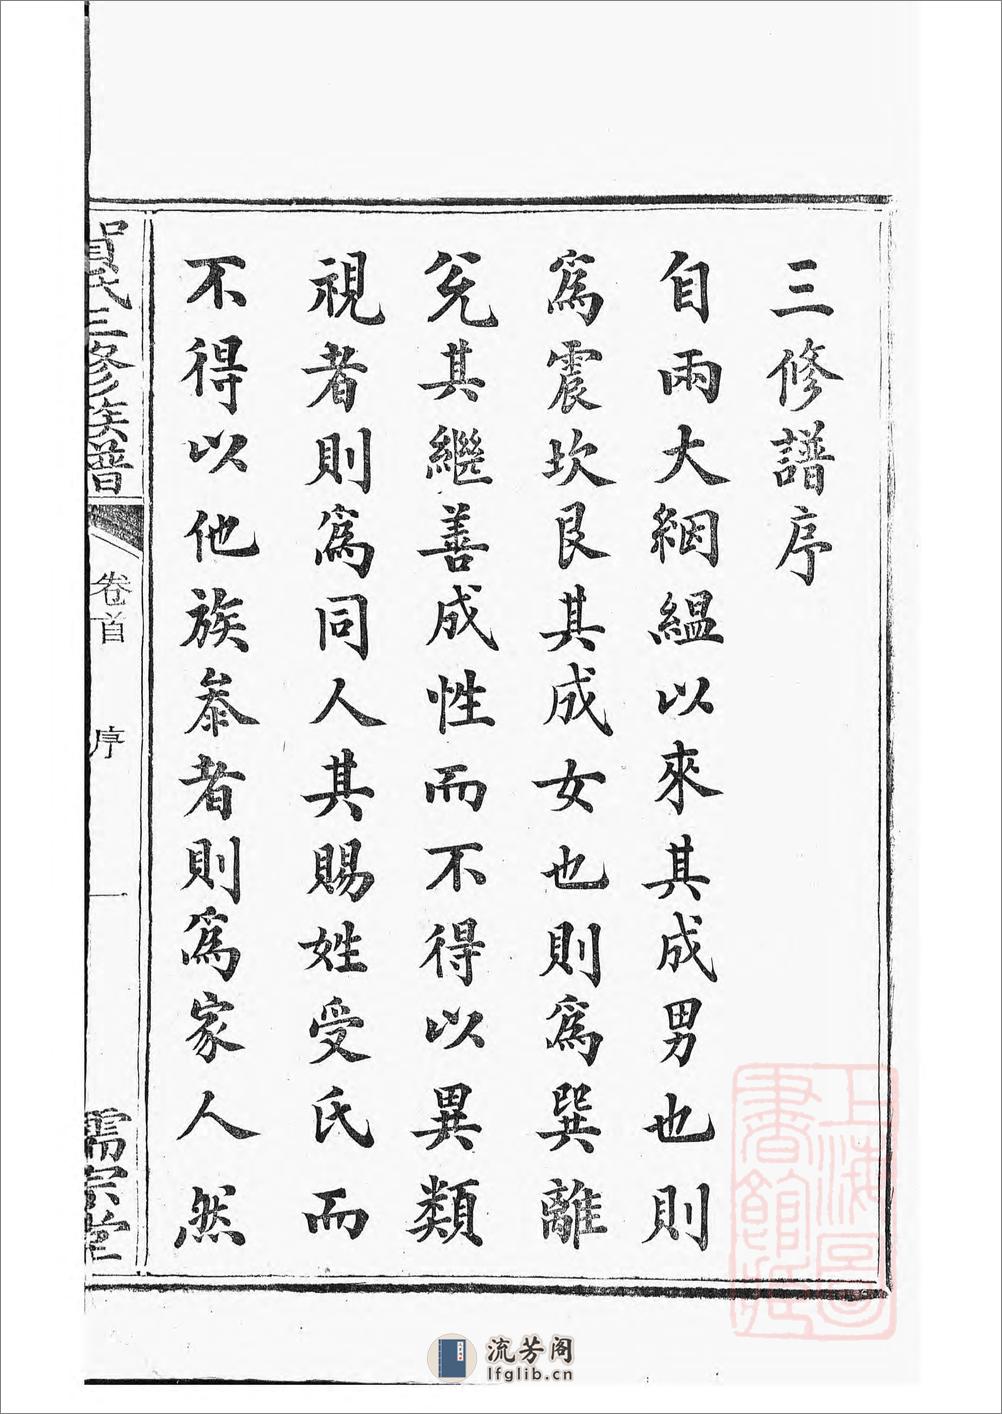 三修譜序
自兩大絪縕以來其成男也則
爲震坎艮其成女也則爲巽離
兌其繼善成性而不得以異類
視者則爲同人其賜姓受氏而
不得以他族叅者則爲家人然
賀氏三修族譜
卷首
序
一
儒宗堂
上海圖書館藏
流芳阁
lfglib.cn